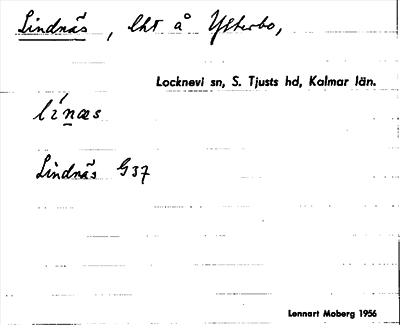 Lindnäs, lht å Ytterbo,
Locknevi sn, S. Tjusts hd, Kalmar län.
lí̱næs
Lindnäs G37
Lennart Moberg 1956